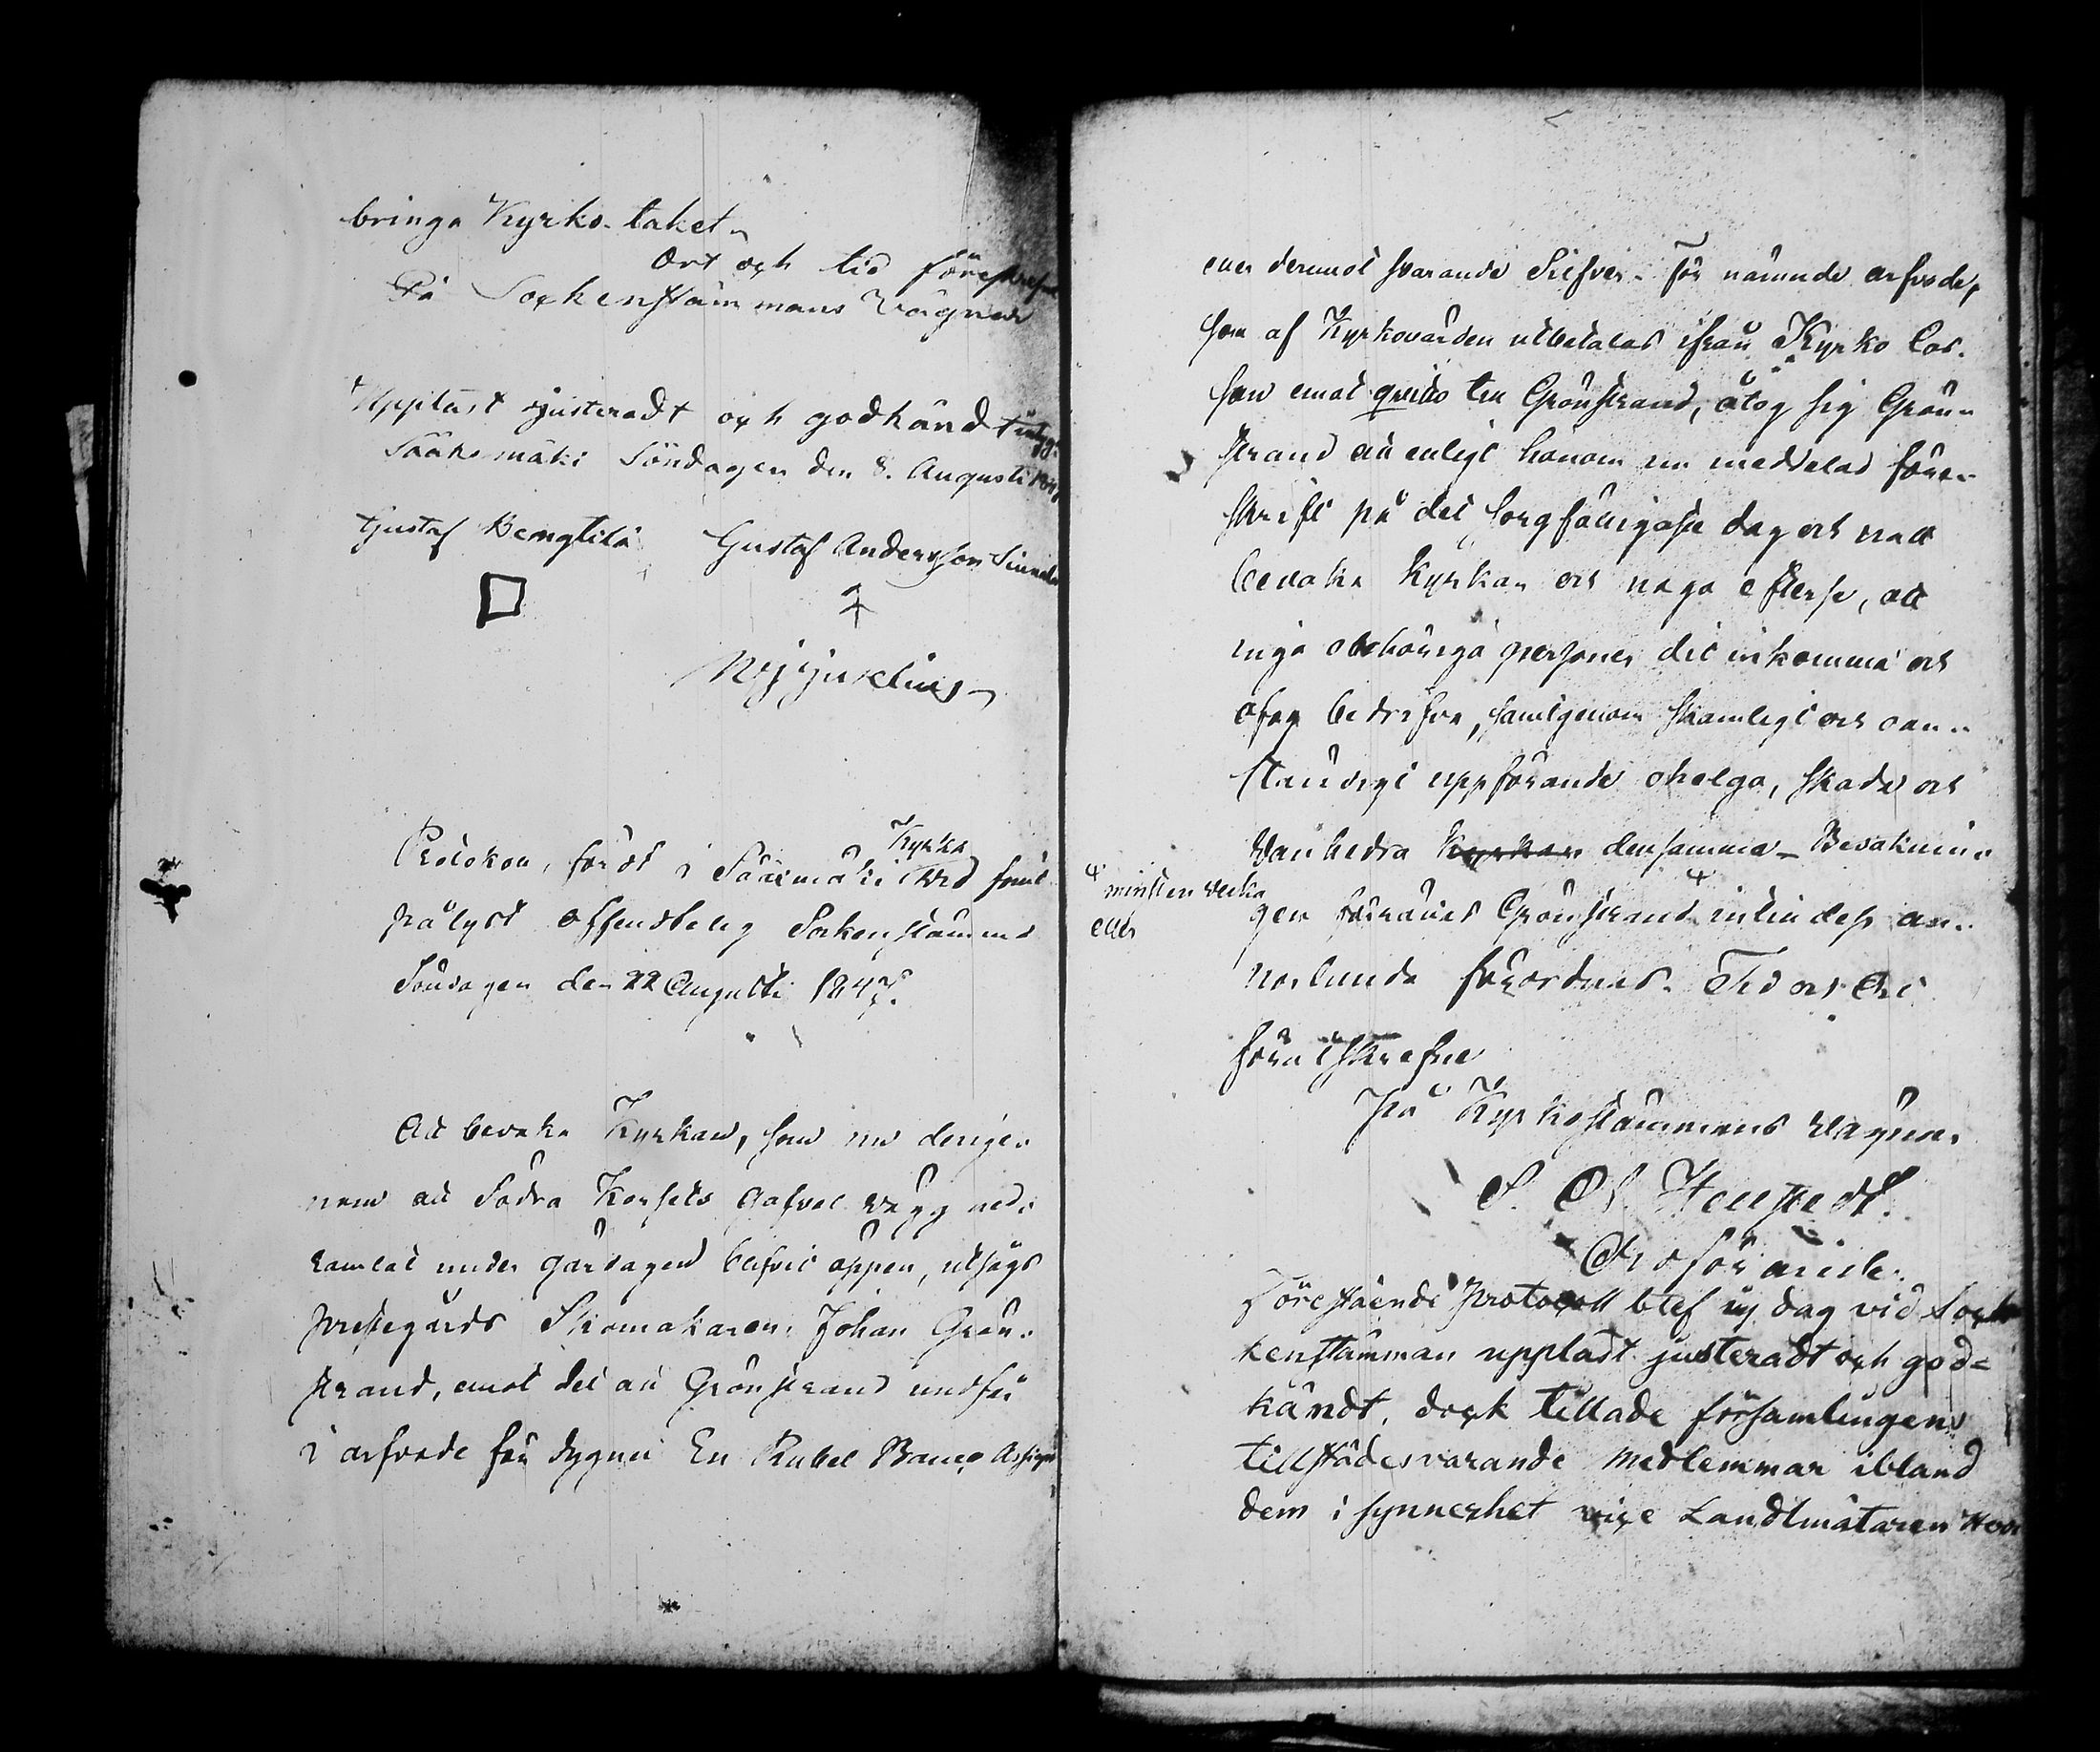 bringa Kyrko-taket.
Ort och tid föreskrefne
På Sockenstämmans vägnar
Uppläst justeradt och godkändt intyga
Sääksmäki Söndagen den 8. Augusti 1847
Gustaf Bengtilä Gustaf Andersson
Protokoll, fördt i Sääxmäki Kyrka vid förut
pålyst offendtelig Sockenstämma
Söndagen den 22 Augusti 1847.
Att bevaka Kyrkan, som nu derige-
nom att Södra Korsets Gafvel vägg ned-
ramlat under gårdagen blifvit öppen, utsågs
prestegårds Skomakaren Johan Grön-
strand, emot det att Grönstrand undfår
i arfvode för dygnet En Rubel Banco Assign
eller deremot svarande Silfver. För nämnde arfvode,
som af Kyrkovärden utbetalas ifrån Kyrko Cas-
san emot qvitto till Grönstrand, åtog sig Grön-
strand att enligt honom nu meddelad före-
skrift på det sorgfälligaste dag och natt
bevaka Kyrkan och noga efterse, att
inga obehöriga personer dit inkomma och
ofog bedrifva, samt genom skamligt och oan-
ständigt uppförande ohelga, skada och
vanhedra Kyrkan densamma. Bevaknin-
minst en vecka
eller
gen Grönstrand intill dess an-
norlunda förordnas. Tid och Ort
förutskrefne
På Kyrkostämmans vägnar
Ordförande.
Förestående Protocoll blef ny dag vid Soc-
kenstämman uppläst justeradt och god=
kändt, dock tillade församlingens
tillstädesvarande medlemmar ibland
dem i synnerhet vice Landtmätaren